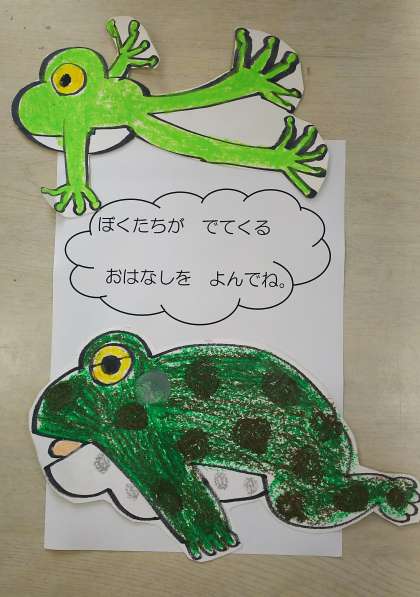 ぼくたちが　でてくる
おはなしを　よんでね。